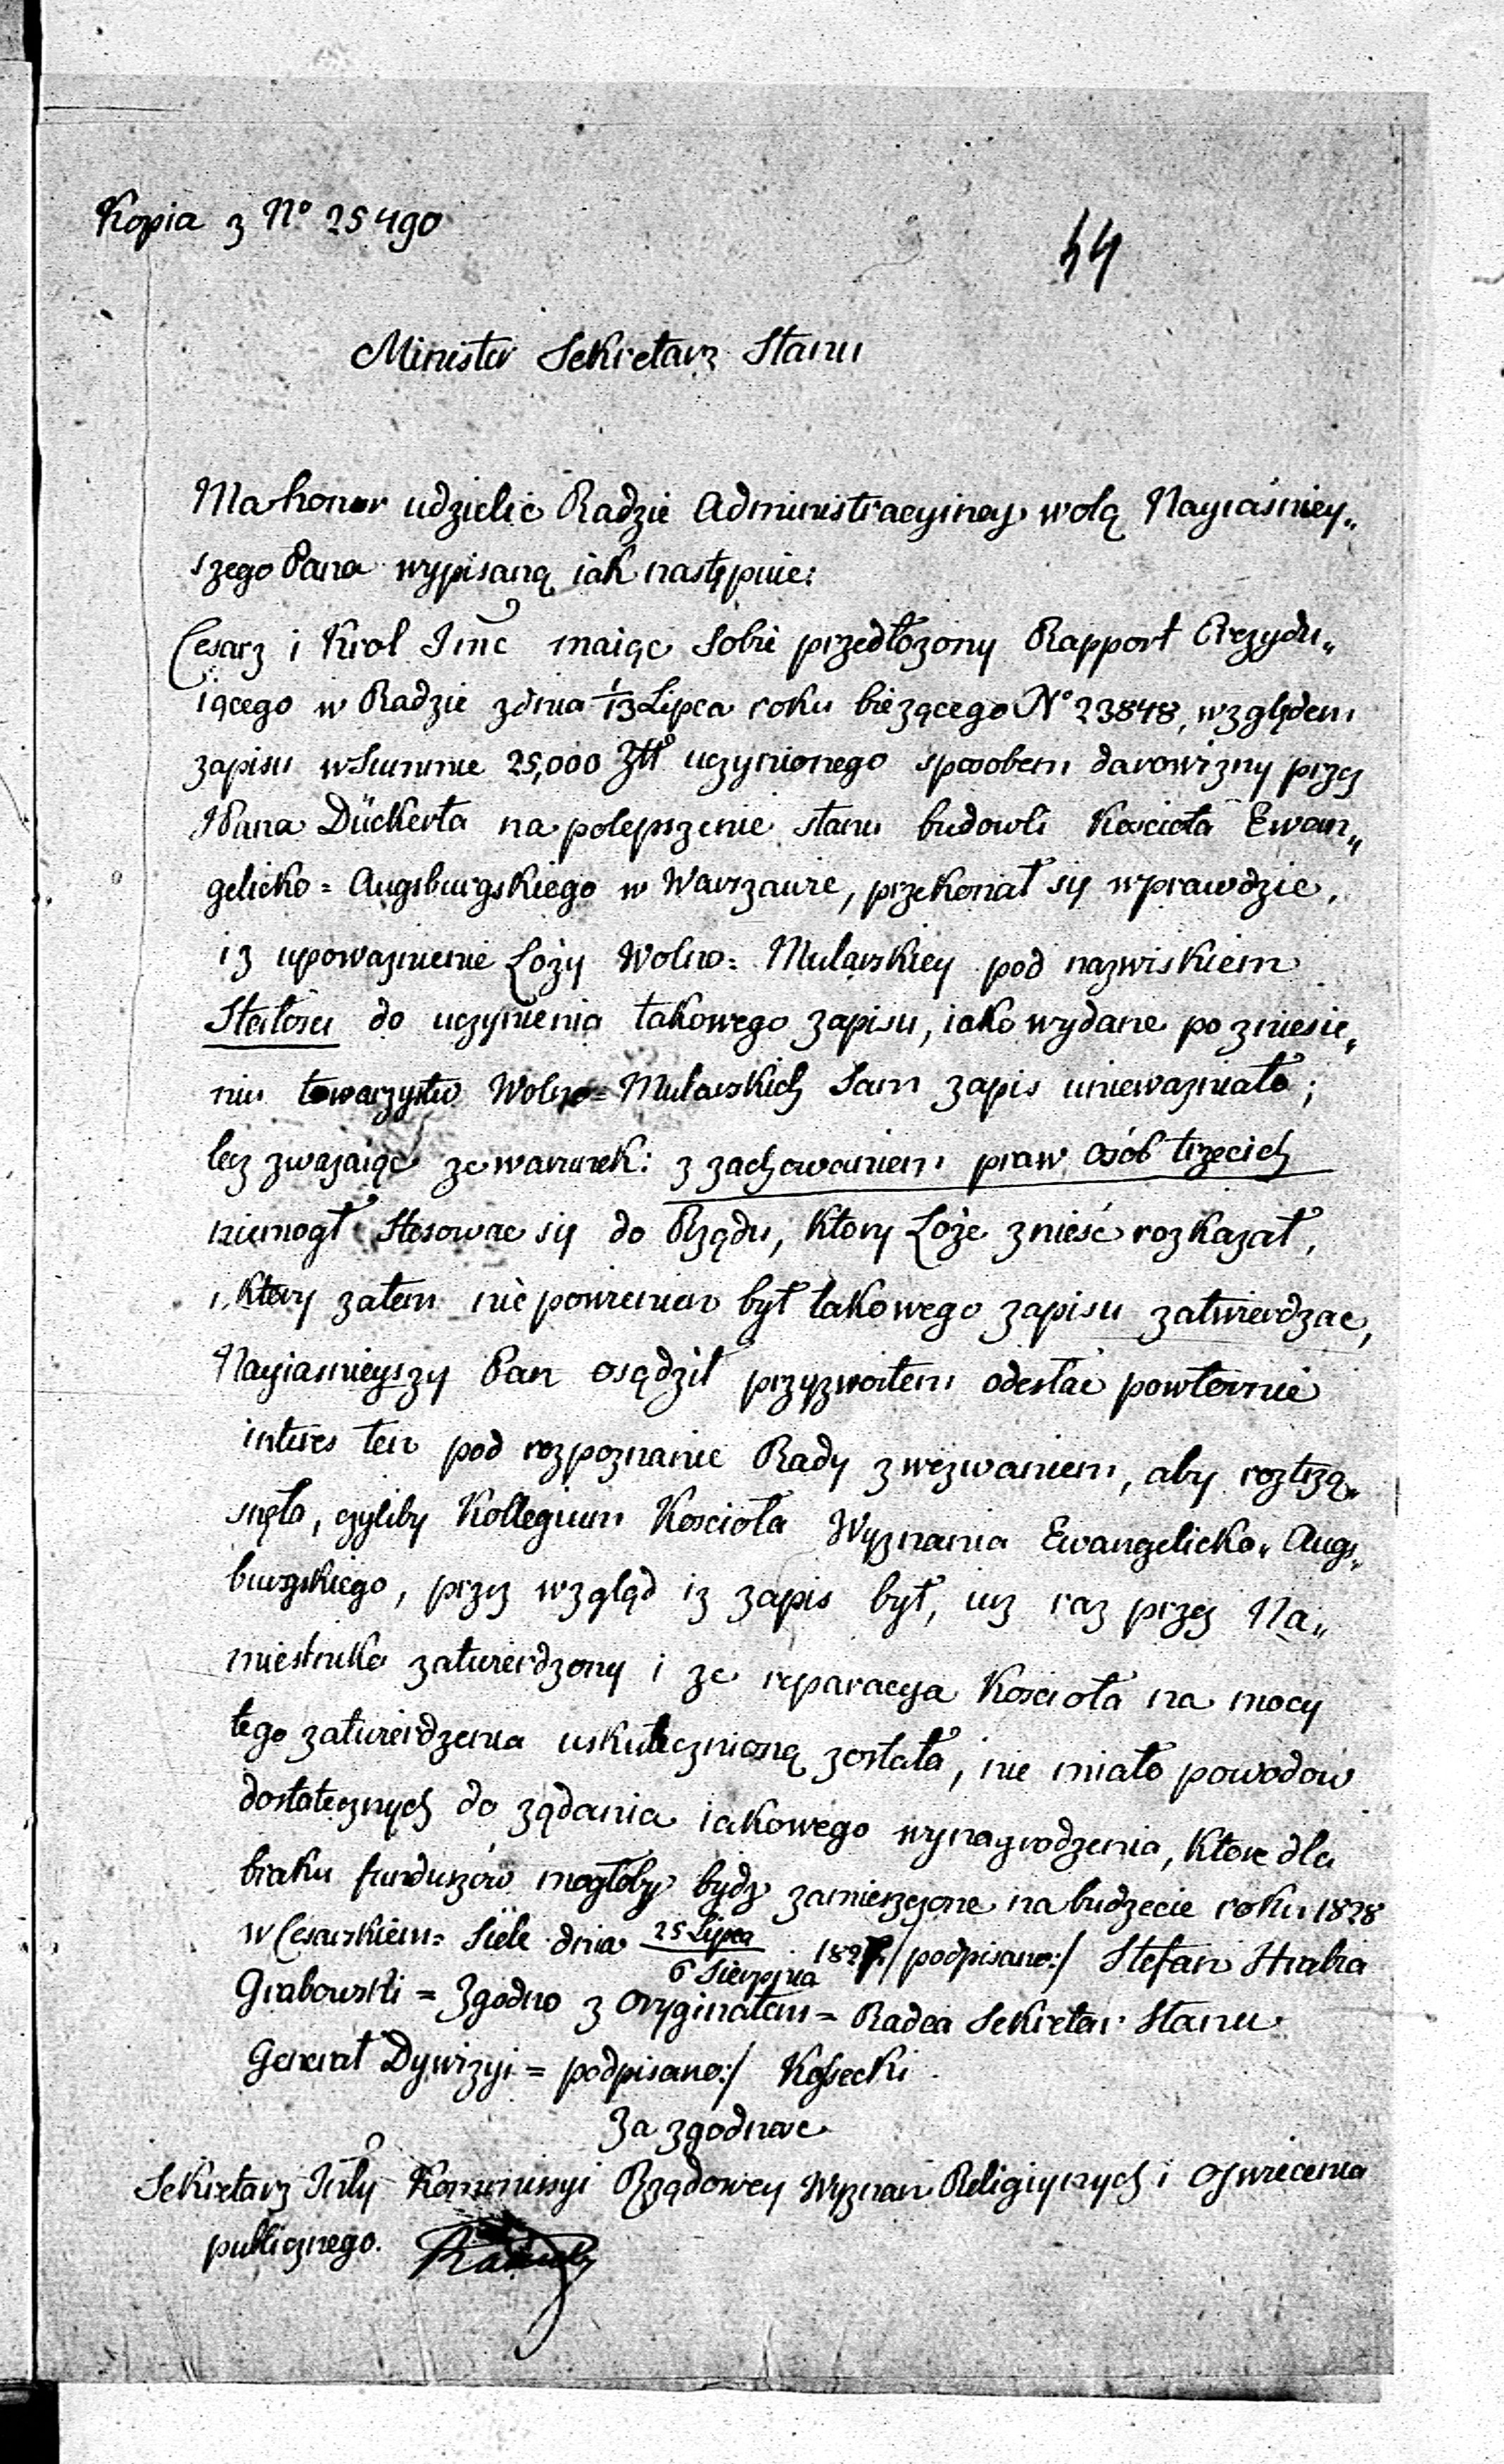 Kopia z Nº 25490
44
Minister Sekretarz Stanu
Ma honor udzielić Radzie Administracyiney wolą Nayiaśniey„
szego Pana wypisaną iak następuie:
Cesarz i Krol Jmć maiąc sobie przedłożony Rapport Prezydu„
iącego w Radzie zdnia 1/13 Lipca roku bieżącego Nº 23848, względem
zapisu wSummie 25,000 Złł uczynionego sposobem darowizny przez
Pana Dückerta na polepszenie stanu budowli Kościoła Ewan„
gelicko = Augsburgskiego w Warszawie, przekonał się wprawdzie,
iz upoważnienie Loży Wolno = Mularskiey pod nazwiskiem
Stałości do uczynienia takowego zapisu, iako wydane po zniesie„
niu towarzystw Wolno = Mularskich sam zapis unieważniało;
lecz zważaiąc ze warunek: z zachowaniem praw osób trzecich
niemogł stosowac się do Rządu, ktory Loże znieść rozkazał,
i, ktory zatem nie powinien był takowego zapisu zatwierdzac,
Nayiasnieyszy Pan osądził przyzwoitem odesłać powtornie
interes ten pod rozpoznanie Rady zwezwaniem, aby roztrzą„
snęła, czyliby Kollegium Kościoła Wyznania Ewangelicko„ Augs„
burgskiego, przez wzgląd iz zapis był, iuz raz przez Na„
miestnika zatwierdzony i ze reparacya Kościoła na mocy
tego zatwierdzenia uskutecznioną została, nie miało powodow
dostatecznych do ządania iakowego wynagrodzenia, ktore dla
braku funduszów mogłoby bydz zamieszczone na budzecie roku 1828
w Cesarskiem = Siele dnia 25 Lipca / 6 Sierpnia 1827./ podpisano:/ Stefan Hrabia
Grabowski = Zgodno z oryginałem = Radca Sekretarz Stanu
Generał Dywizyi = podpisano:/ Kossecki
Za zgodnosc
Sekretarz Jnly Kommissyi Rządowey Wyznań Religiynych i Oswiecenia
publicznego.